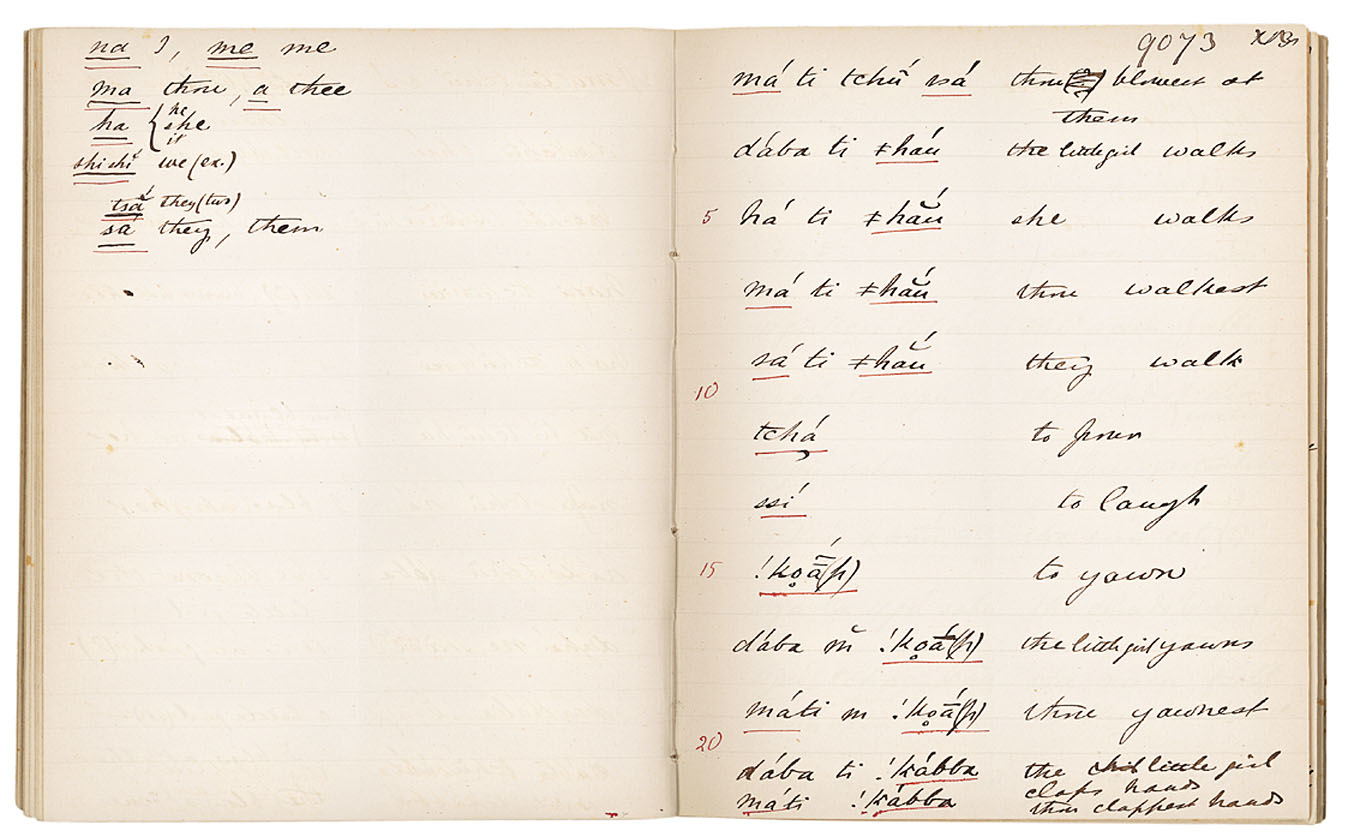 na I, me me
ma thou, a thee
ha { he
she
it
shishĭ we (ex.)
tsá̆ they (two)
sá they, them
9073
má ti tchū́ sá thou blowest at
them
dába ti ǂháú the little girl walks
5 há ti ǂhắŭ she walks
má ti ǂhắŭ thou walkest
sá ti ǂhắŭ they walk
10
tchá to pour
ssí to laugh
15 !ko̥ā́(h) to yawn
dába m̆ !ko̥ā́(h) the little girl yawns
máti m !ko̥ā́(h) thou yawnest
20
dába ti !kábba the little girl
claps hands
máti !kábba thou clappest hands